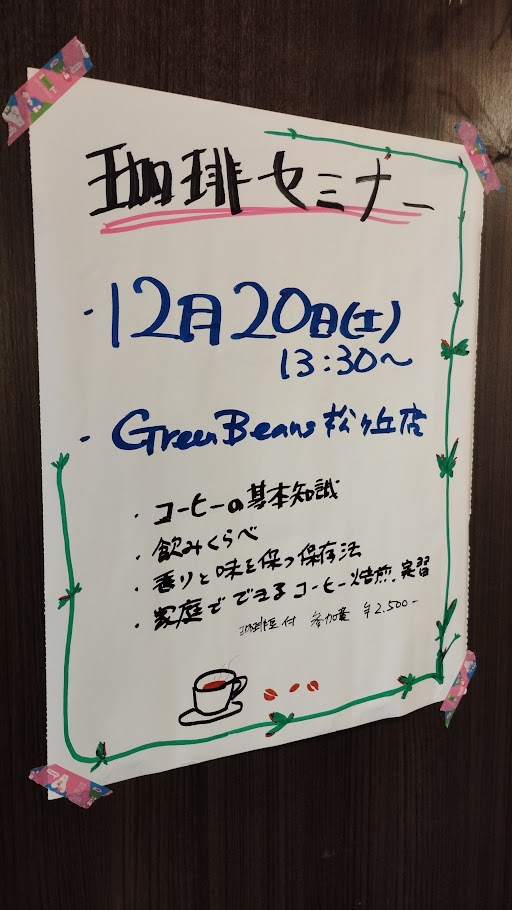 珈琲セミナー
・12月20日(土)
13:30〜
・GreenBeans 松ヶ丘店
・コーヒーの基本知識
・飲みくらべ
・香りと味を保つ保存法
・家庭でできるコーヒー焙煎.実習
珈琲豆付 参加費 ¥2.500-